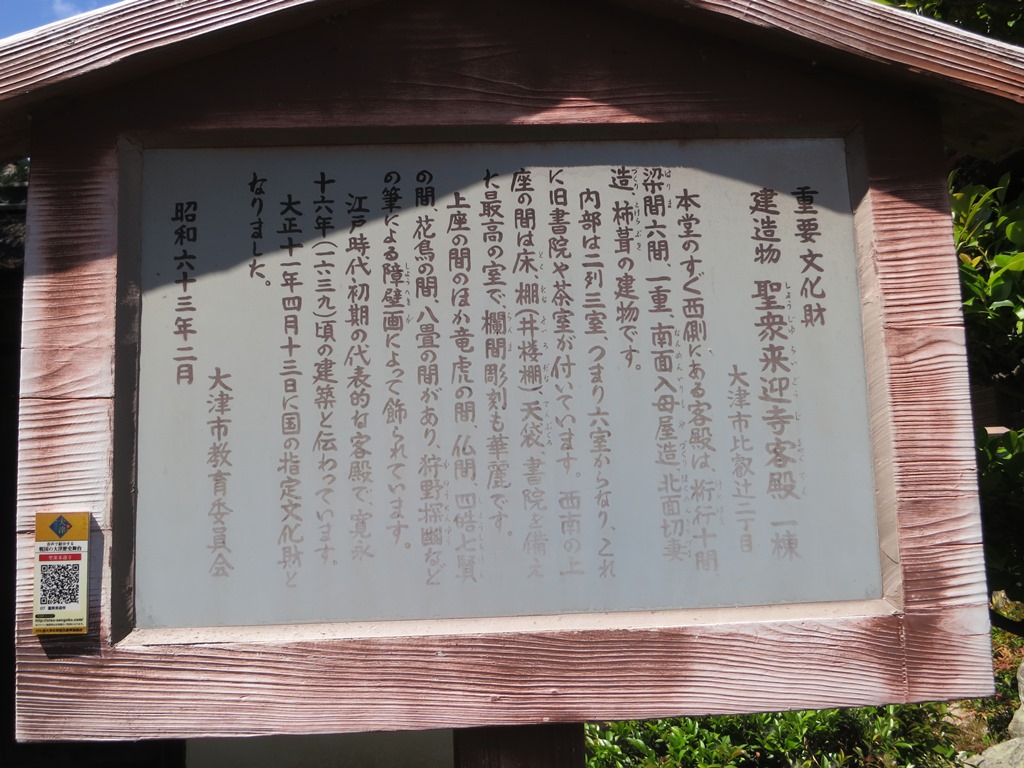 重要文化財
建造物 聖衆来迎寺客殿 一棟
大津市比叡辻二丁目
本堂のすぐ西側にある客殿は、桁行十間
梁間六間、一重、南面入母屋造、北面切妻
造、杮葺の建物です。
内部は二列三室、つまり六室からなり、これ
に旧書院や茶室が付いています。西南の上
座の間は床、棚(井楼棚)、天袋、書院を備え
た最高の室で、欄間彫刻も華麗です。
上座の間のほか竜虎の間、仏間、四皓七賢
の間、花鳥の間、八畳の間があり、狩野探幽など
の筆による障壁画によって飾られています。
江戸時代初期の代表的な客殿で、寛永
十六年(一六三九)頃の建築と伝わっています。
大正十一年四月十三日に国の指定文化財と
なりました。
大津市教育委員会
昭和六十三年二月
音声で紹介する
戦国の大津歴史舞台
聖衆来迎寺